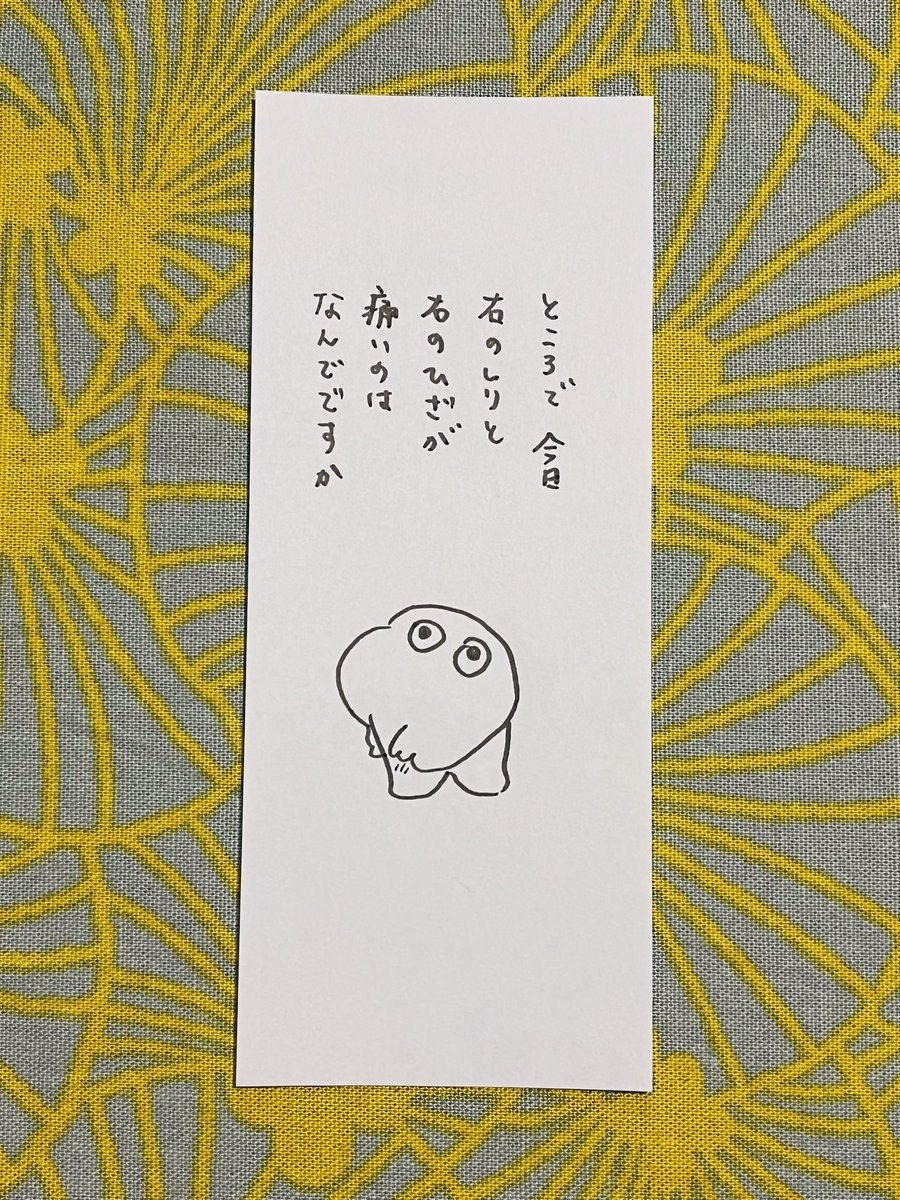 ところで 今日
右のしりと
右のひざが
痛いのは
なんでですか